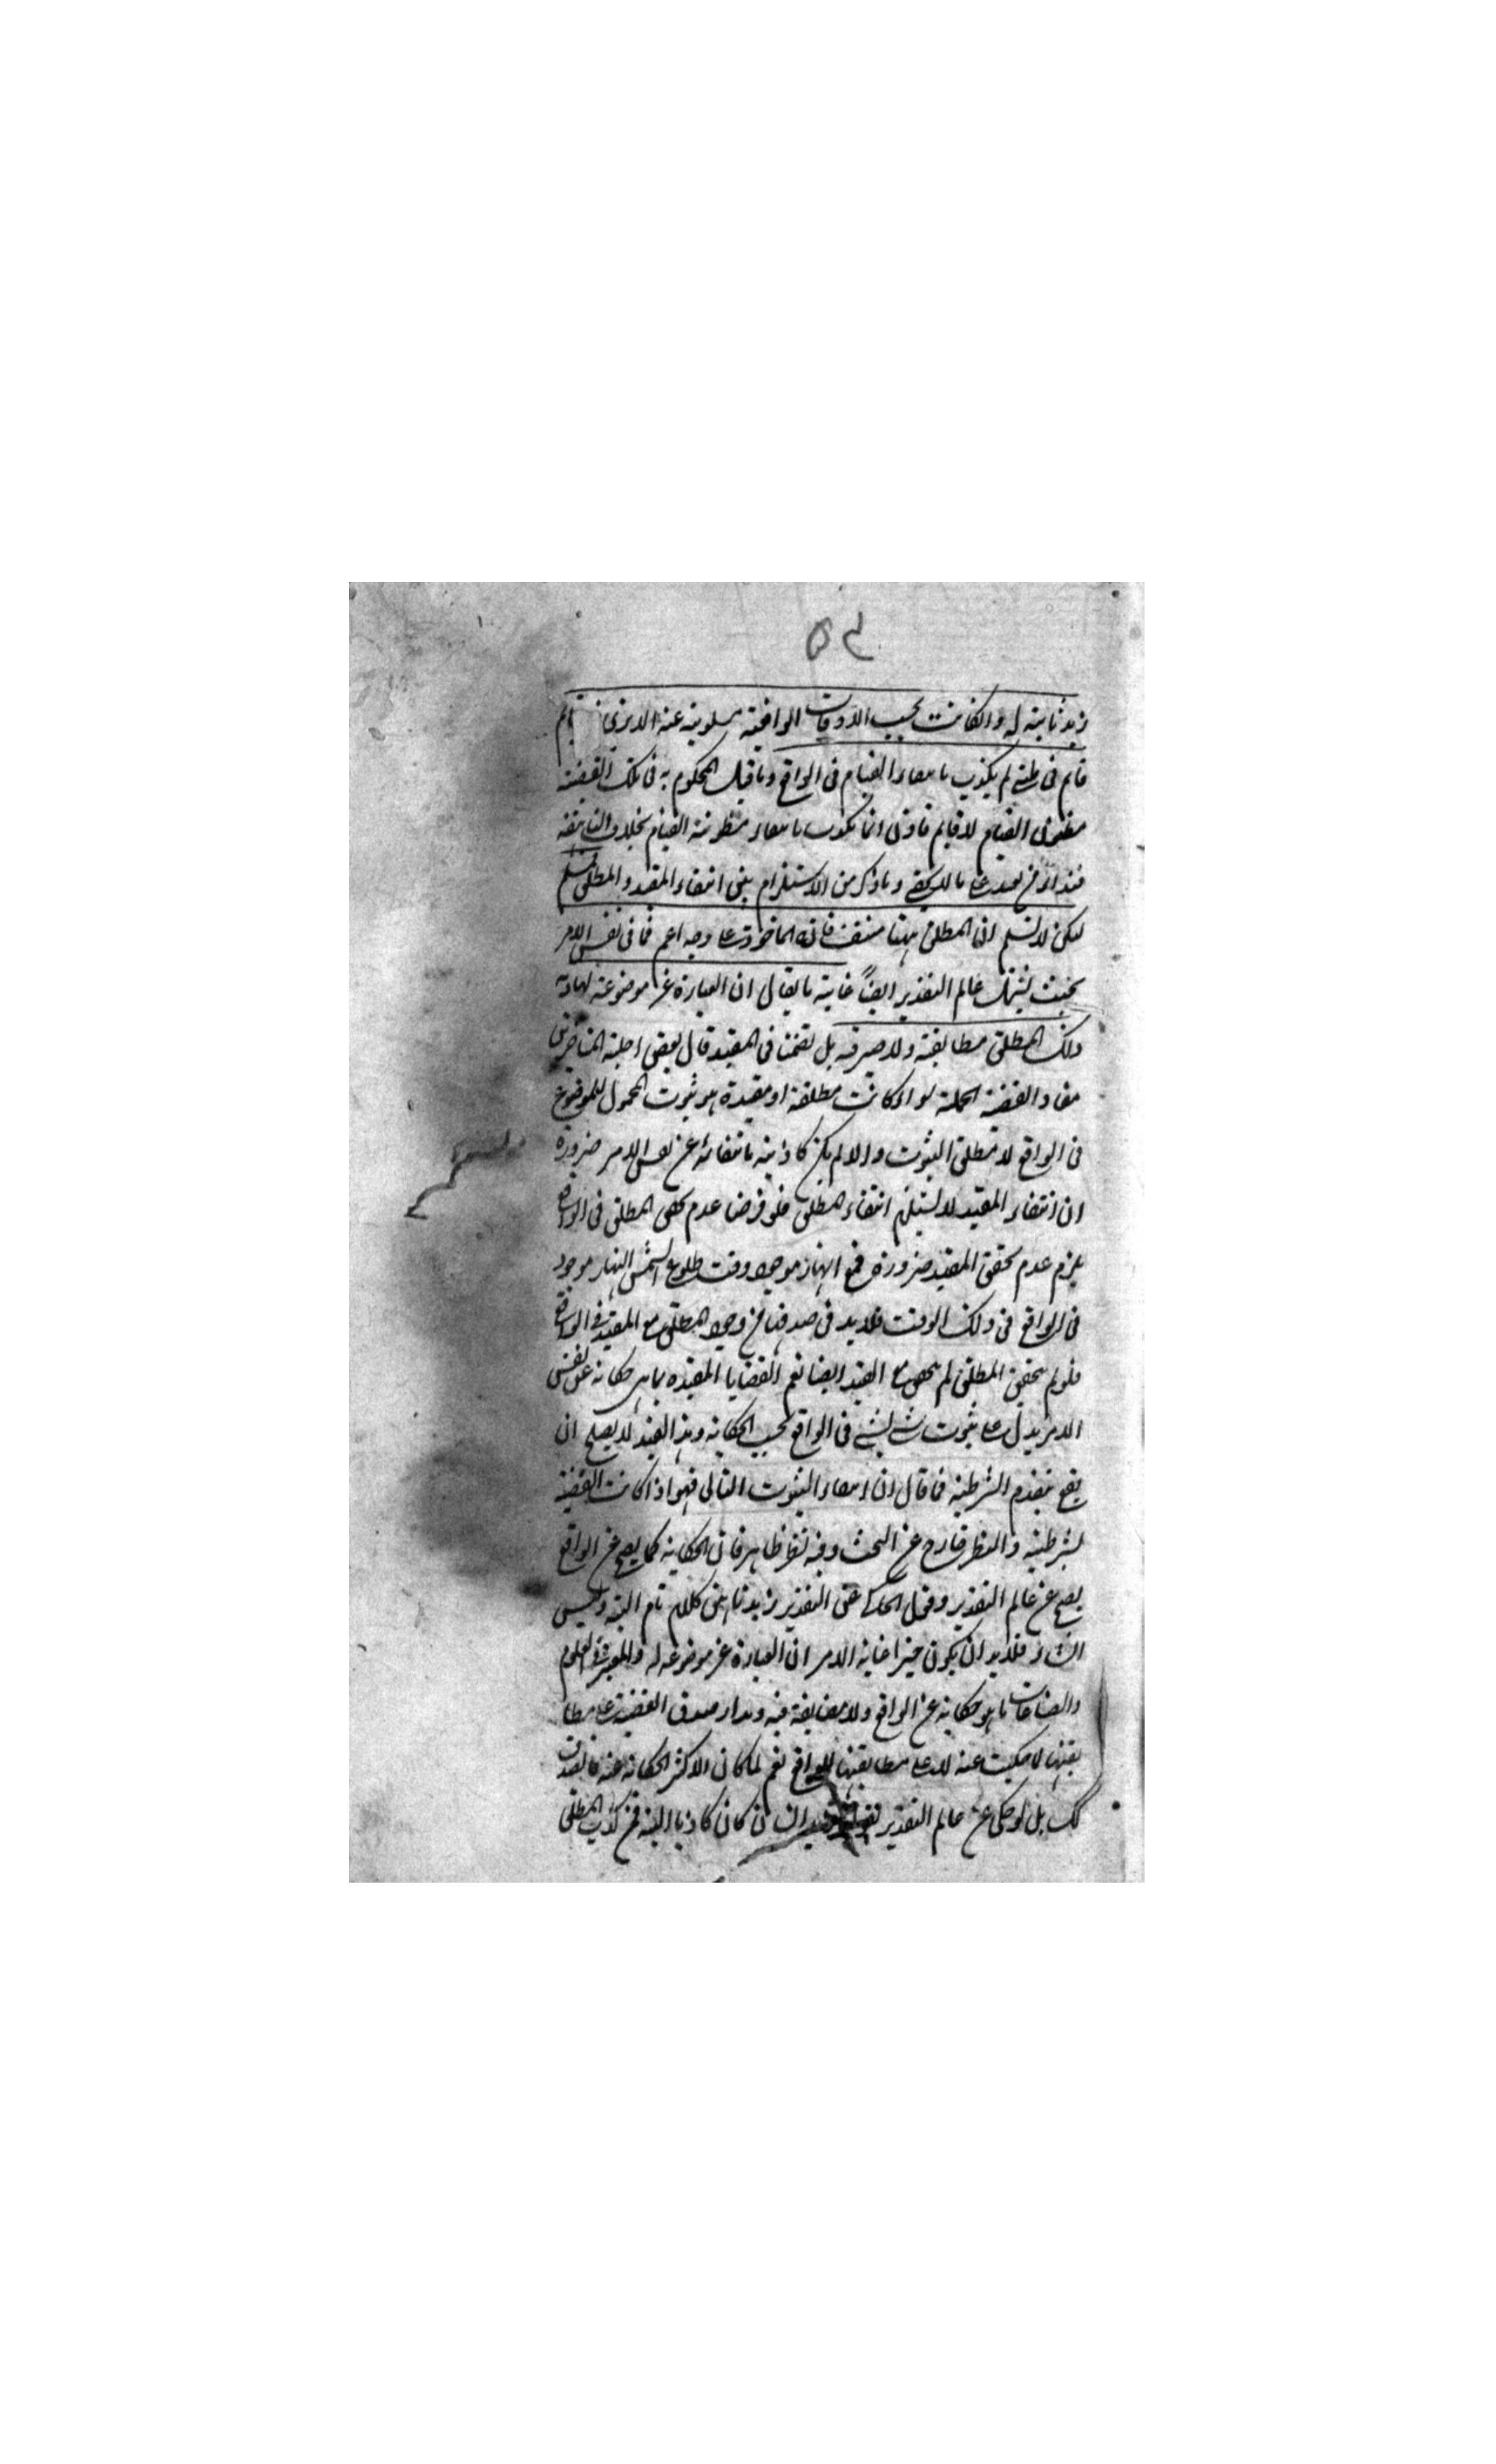 ٥٤
زيد ثابتة له وانكانت بحسب الاوقات الواقعية مسلوبة عنه الا ترى قائم
قائم فى ظنى لم يكذب بانتفاء القيام فى الواقع وما قيل المحكوم به فى تلك القضية
مظنون القيام لا قائم فاون انما يكذب بانتفاء مظنونية القيام بخلاف
وما ذكر من الاستلزام بين انتفاء المقيد والمطلق مسلم
لكن لا نسلم ان المطلق ههنا منتف فانه الماخوذ على وجه اعم مما فى نفس الامر
بحيث يشمل عالم التقدير ايضاً غاية ما يقال ان العبارة غير موضوعة لهادته
ذلك المطلق مطابقة ولا صيرفيه بل تضمنا فى المقيد قال بعض اجلة المتاخرين
مفاد القضية الحملية سواء كانت مطلقة او مقيدة هو ثبوت المحمول للموضوع
فى الواقع لا مطلق الثبوت والا لم يكن كاذبة بانتفائه عن نفس الامر ضرورة
ان انتفاء المقيد لا يستلزم انتفاء المطلق فلو فرضنا عدم تحقق المطلق فى الواقع
يلزم عدم تحقق المقيد ضرورة فمع النهار موجود وقت طلوع الشمس النهار موجود
فى الواقع فى ذلك الوقت فلابد فى صدقها من وجود المطلق مع المقيد فى الواقع
فلو لم يتحقق المطلق لم يتحقق مع القيد ايضا نعم القضايا المقيدة بما هى حكاية عن نفس
الامر يدل على ثبوت شى لشى فى الواقع بحسب الحكاية وهذا القيد لا يصلح ان
يقع مقدم الشرطية فما قال ان انتفاء الثبوت التالى فهو اذا كانت القضية
شرطية والنظر خارج عن البحث وفيه نظر ظاهر فان الحكاية كما يصح عن الواقع
يصح عن عالم التقدير وقول الحاكى على التقدير زيد ناهق كلام تام البتة وليس
انشاء فلابد ان يكون خبرا غاية الامر ان العبارة غير موضوعة له والمعتبر فى العلوم
والصناعات ما هو حكاية عن الواقع ولا مضايقة فيه ومدار صدق القضية على مطا
بقتها لما حكيت عنه لا على مطابقتها للواقع نعم لما كان الاكثر الحكاية عنه فالصدق
كك بل لو حكى عن عالم التقدير كان كاذبا البتة فمن كذب المطلق